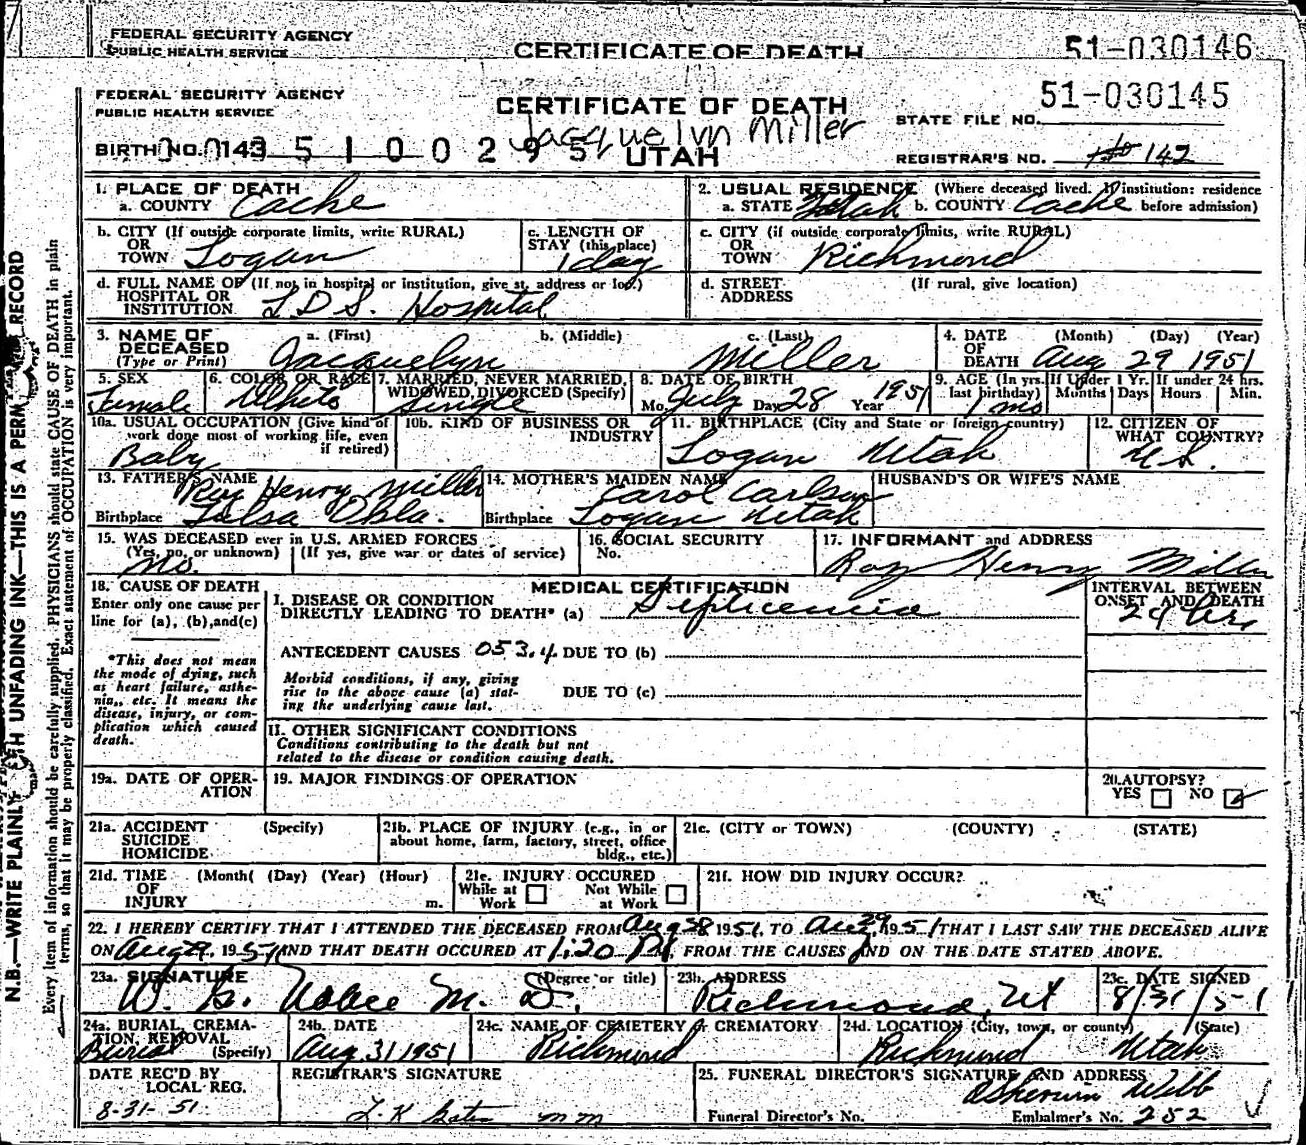 FEDERAL SECURITY AGENCY
PUBLIC HEALTH SERVICE
CERTIFICATE OF DEATH
51-030146
FEDERAL SECURITY AGENCY
PUBLIC HEALTH SERVICE
CERTIFICATE OF DEATH
51-030145
STATE FILE NO.
Jacquelyn Miller
BIRTH NO. 0143 5 1 0 0 2 9 5 UTAH
REGISTRAR'S NO. 142
1. PLACE OF DEATH
a. COUNTY Cache
2. USUAL RESIDENCE (Where deceased lived. If institution: residence before admission)
a. STATE Utah b. COUNTY Cache
b. CITY (If outside corporate limits, write RURAL) OR TOWN Logan
c. LENGTH OF STAY (this place) 1 day
c. CITY (if outside corporate limits, write RURAL) OR TOWN Richmond
d. FULL NAME OF (If not in hospital or institution, give st. address or loc.) HOSPITAL OR INSTITUTION L.D.S. Hospital
d. STREET ADDRESS (If rural, give location)
3. NAME OF DECEASED (Type or Print) a. (First) Jacquelyn b. (Middle) c. (Last) Miller
4. DATE OF DEATH (Month) (Day) (Year) Aug 29 1951
5. SEX Female
6. COLOR OR RACE White
7. MARRIED, NEVER MARRIED, WIDOWED, DIVORCED (Specify) Single
8. DATE OF BIRTH Mo. July Day 28 Year 1951
9. AGE (In yrs. last birthday) 1 mo If Under 1 Yr. Months Days If under 24 hrs. Hours Min.
10a. USUAL OCCUPATION (Give kind of work done most of working life, even if retired) Baby
10b. KIND OF BUSINESS OR INDUSTRY
11. BIRTHPLACE (City and State or foreign country) Logan Utah
12. CITIZEN OF WHAT COUNTRY? U.S.
13. FATHER'S NAME Ray Henry Miller
Birthplace Tulsa Okla.
14. MOTHER'S MAIDEN NAME Carol Carlson
Birthplace Logan Utah
HUSBAND'S OR WIFE'S NAME
15. WAS DECEASED ever in U.S. ARMED FORCES (Yes, no, or unknown) (If yes, give war or dates of service) No.
16. SOCIAL SECURITY No.
17. INFORMANT and ADDRESS
Ray Henry Miller
18. CAUSE OF DEATH
Enter only one cause per line for (a), (b), and (c)
*This does not mean the mode of dying, such as heart failure, asthenia, etc. It means the disease, injury, or complication which caused death.
MEDICAL CERTIFICATION
I. DISEASE OR CONDITION DIRECTLY LEADING TO DEATH* (a) Septicemia
INTERVAL BETWEEN ONSET AND DEATH
24 hrs.
ANTECEDENT CAUSES 053.4 DUE TO (b)
Morbid conditions, if any, giving rise to the above cause (a) stating the underlying cause last.
DUE TO (c)
II. OTHER SIGNIFICANT CONDITIONS
Conditions contributing to the death but not related to the disease or condition causing death.
19a. DATE OF OPERATION
19. MAJOR FINDINGS OF OPERATION
20. AUTOPSY?
YES NO
21a. ACCIDENT SUICIDE HOMICIDE (Specify)
21b. PLACE OF INJURY (e.g., in or about home, farm, factory, street, office bldg., etc.)
21c. (CITY or TOWN) (COUNTY) (STATE)
21d. TIME OF INJURY (Month( (Day) (Year) (Hour) m.
21e. INJURY OCCURED While at Work Not While at Work
21f. HOW DID INJURY OCCUR?
22. I HEREBY CERTIFY THAT I ATTENDED THE DECEASED FROM Aug 28 1951, TO Aug 29, 1951 THAT I LAST SAW THE DECEASED ALIVE
ON Aug 29, 1951 AND THAT DEATH OCCURED AT 1:20 P.M. FROM THE CAUSES AND ON THE DATE STATED ABOVE.
23a. SIGNATURE (Degree or title) M. D.
23b. ADDRESS Richmond, Ut
23c. DATE SIGNED 8/31/51
24a. BURIAL, CREMATION, REMOVAL (Specify) Burial
24b. DATE Aug 31 1951
24c. NAME OF CEMETERY or CREMATORY Richmond
24d. LOCATION (City, town, or county) (State) Richmond Utah
DATE REC'D BY LOCAL REG. 8-31-51
REGISTRAR'S SIGNATURE
25. FUNERAL DIRECTOR'S SIGNATURE AND ADDRESS
Webb
Funeral Director's No. Embalmer's No. 252
N.B.—WRITE PLAINLY WITH UNFADING INK—THIS IS A PERM RECORD
Every item of information should be carefully supplied. PHYSICIANS should state CAUSE OF DEATH in plain
terms, so that it may be properly classified. Exact statement of OCCUPATION is very important.